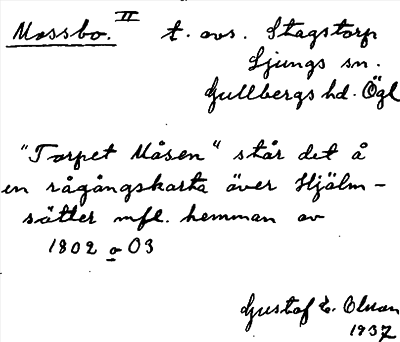 Mossbo. II t. avs. Stagstorp
Ljungs sn.
Gullbergs hd. Ögl
"Torpet Måsen" står det å
en rågångskarta över Hjälm-
sätter mfl. hemman av
1802 o 03
Gustaf E. Olsson
1937